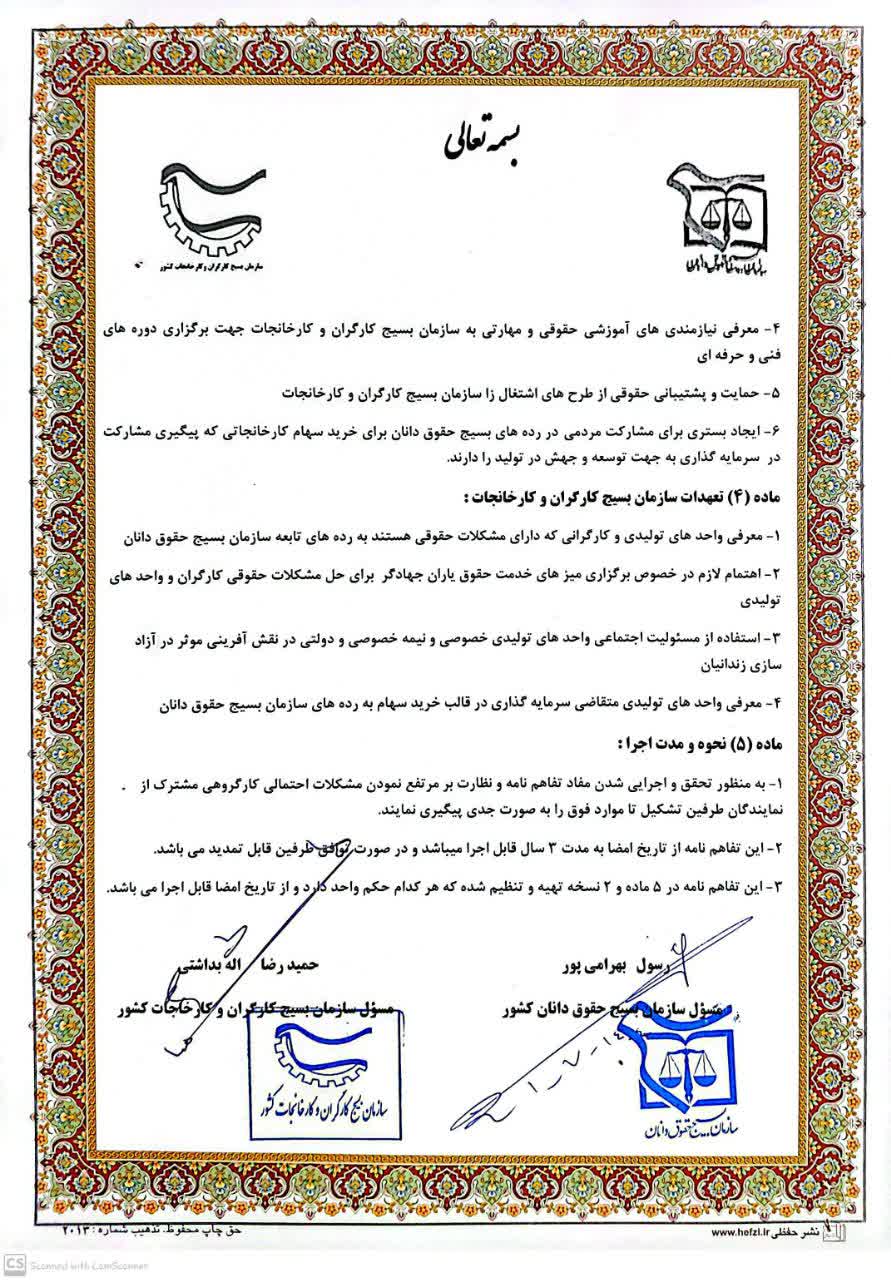 بسمه تعالی
سازمان بسیج کارگران و کارخانجات کشور
۴- معرفی نیازمندی های آموزشی حقوقی و مهارتی به سازمان بسیج کارگران و کارخانجات جهت برگزاری دوره های
فنی و حرفه ای
۵- حمایت و پشتیبانی حقوقی از طرح های اشتغال زا سازمان بسیج کارگران و کارخانجات
۶- ایجاد بستری برای مشارکت مردمی در رده های بسیج حقوق دانان برای خرید سهام کارخانجاتی که پیگیری مشارکت
در سرمایه گذاری به جهت توسعه و جهش در تولید را دارند.
ماده (۴) تعهدات سازمان بسیج کارگران و کارخانجات :
۱- معرفی واحد های تولیدی و کارگرانی که دارای مشکلات حقوقی هستند به رده های تابعه سازمان بسیج حقوق دانان
۲- اهتمام لازم در خصوص برگزاری میز های خدمت حقوق یاران جهادگر برای حل مشکلات حقوقی کارگران و واحد های
تولیدی
۳- استفاده از مسئولیت اجتماعی واحد های تولیدی خصوصی و نیمه خصوصی و دولتی در نقش آفرینی موثر در آزاد
سازی زندانیان
۴- معرفی واحد های تولیدی متقاضی سرمایه گذاری در قالب خرید سهام به رده های سازمان بسیج حقوق دانان
ماده (۵) نحوه و مدت اجرا :
۱- به منظور تحقق و اجرایی شدن مفاد تفاهم نامه و نظارت بر مرتفع نمودن مشکلات احتمالی کارگروهی مشترک از
نمایندگان طرفین تشکیل تا موارد فوق را به صورت جدی پیگیری نمایند.
۲- این تفاهم نامه از تاریخ امضا به مدت ۳ سال قابل اجرا میباشد و در صورت توافق طرفین قابل تمدید می باشد.
۳- این تفاهم نامه در ۵ ماده و ۲ نسخه تهیه و تنظیم شده که هر کدام حکم واحد دارد و از تاریخ امضا قابل اجرا می باشد.
رسول بهرامی پور
حمید رضا اله بداشتی
مسؤل سازمان بسیج حقوق دانان کشور
مسؤل سازمان بسیج کارگران و کارخاجات کشور
سازمان بسیج حقوق دانان
سازمان بسیج کارگران و کارخانجات کشور
نشر حفظی www.hefzi.ir
حق چاپ محفوظ. تذهیب شماره: ۲۰۱۳
CS Scanned with CamScanner